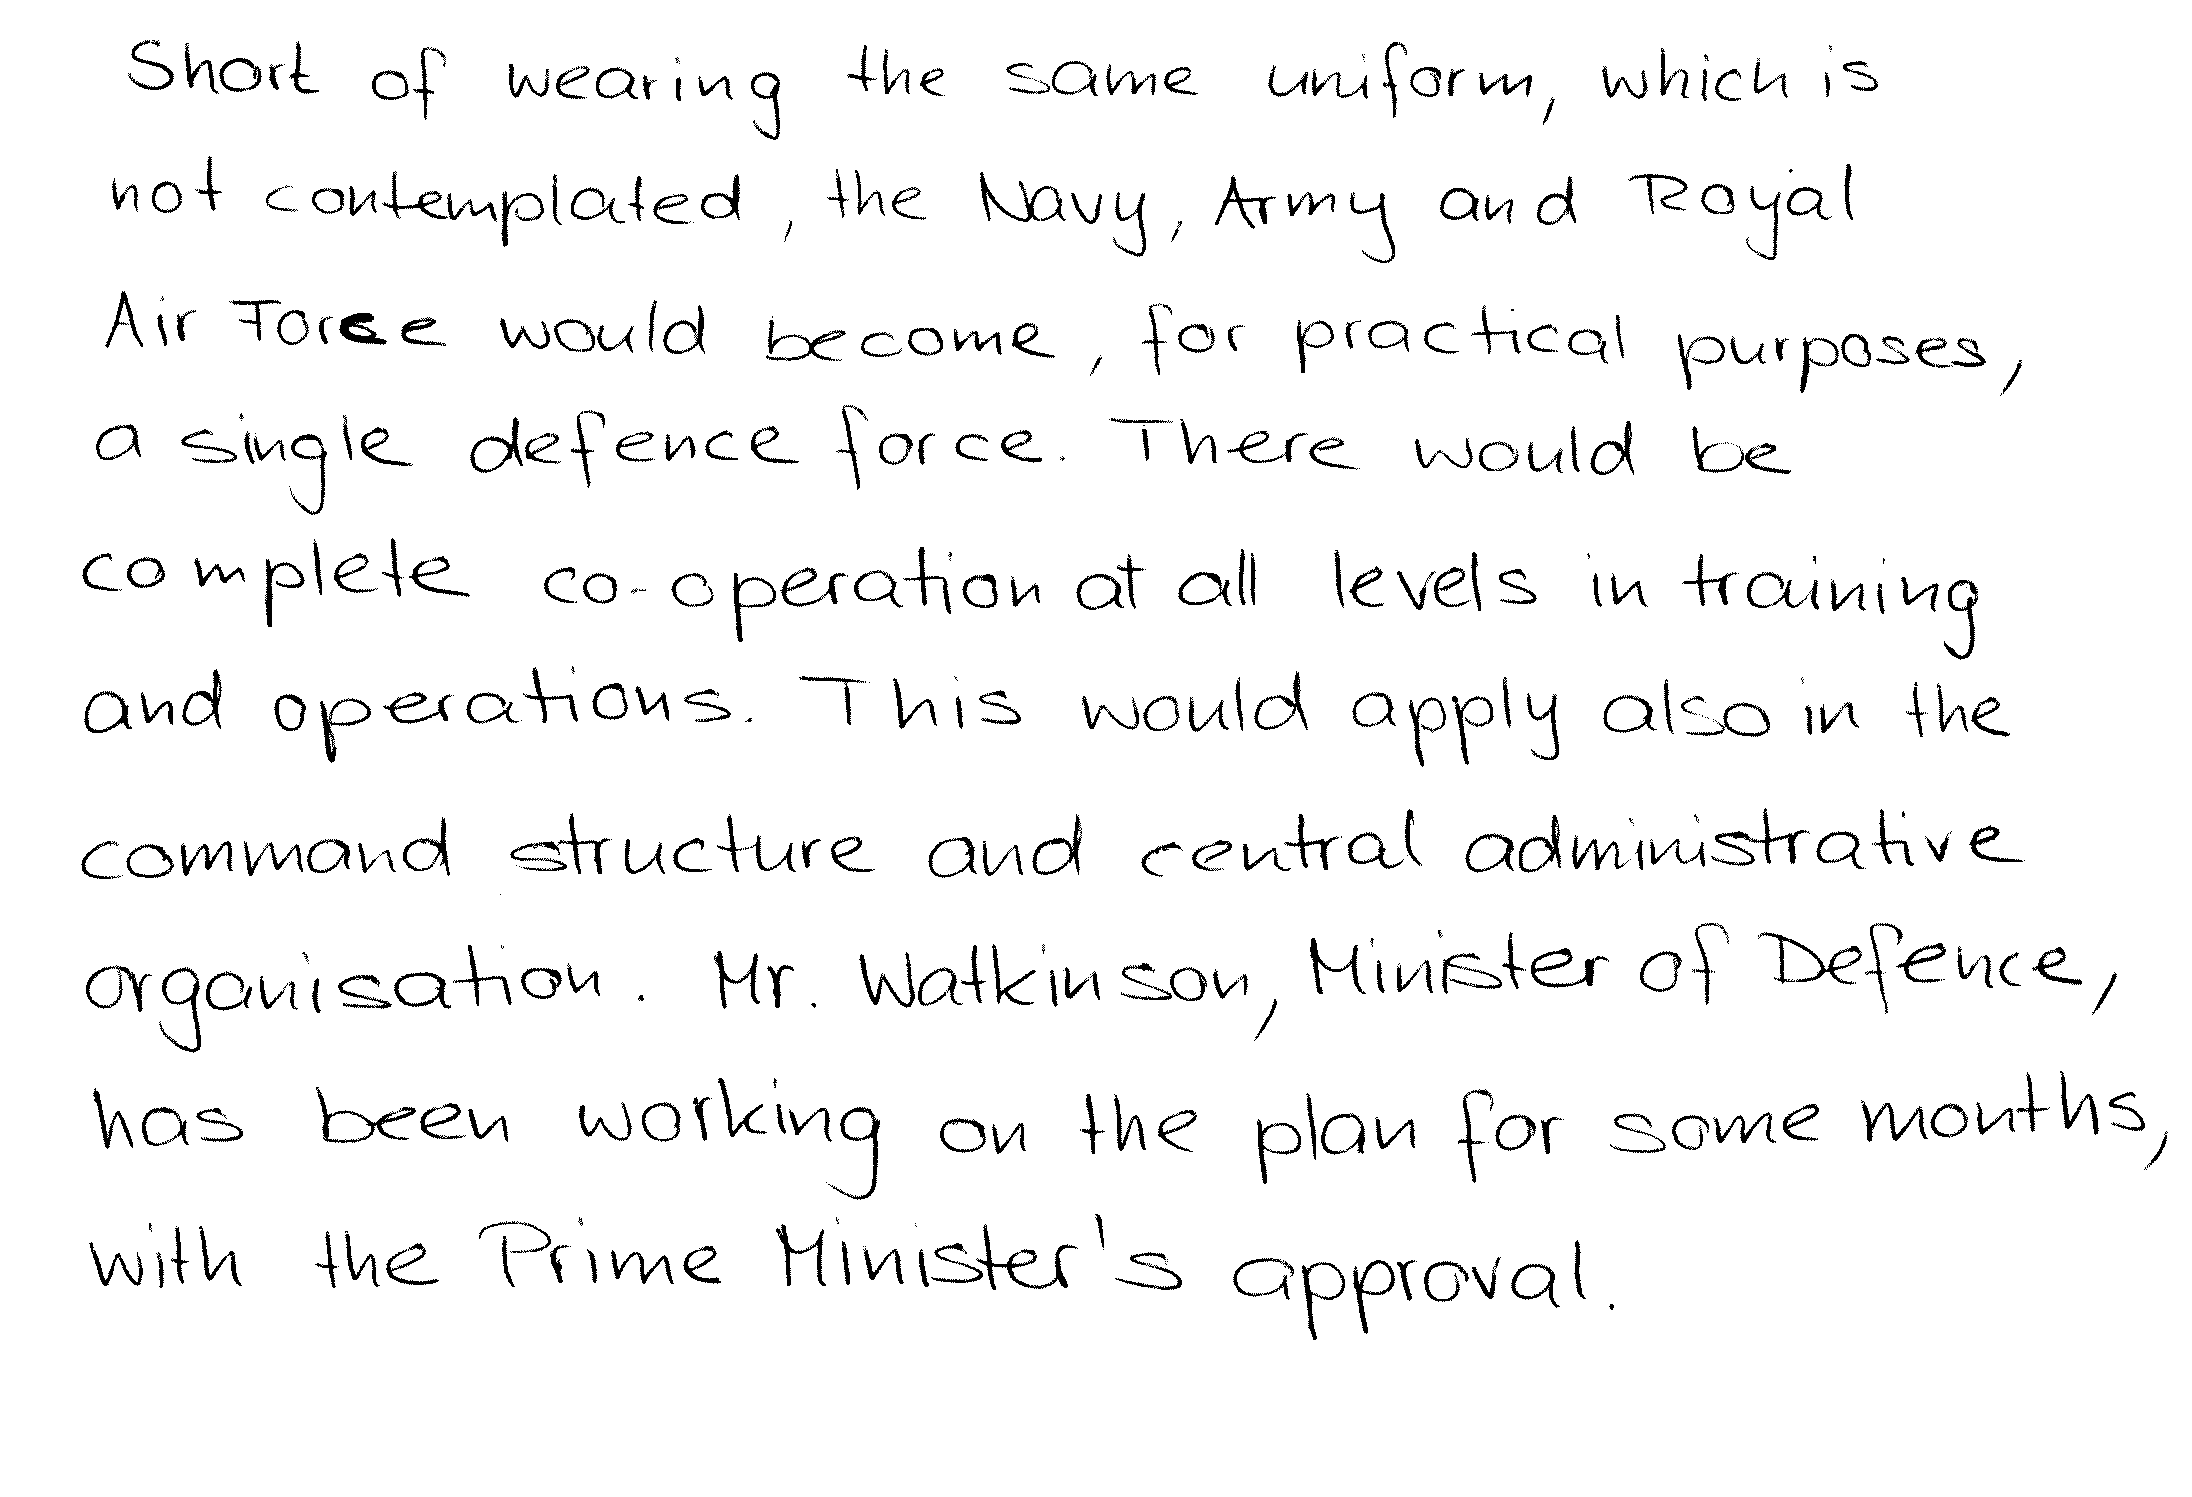 Short of wearing the same uniform, which is
not contemplated, the Navy, Army and Royal
Air Force would become, for practical purposes,
a single defence force. There would be
complete co-operation at all levels in training
and operations. This would apply also in the
command structure and central administrative
organisation. Mr. Watkinson, Minister of Defence,
has been working on the plan for some months,
with the Prime Minister's approval.